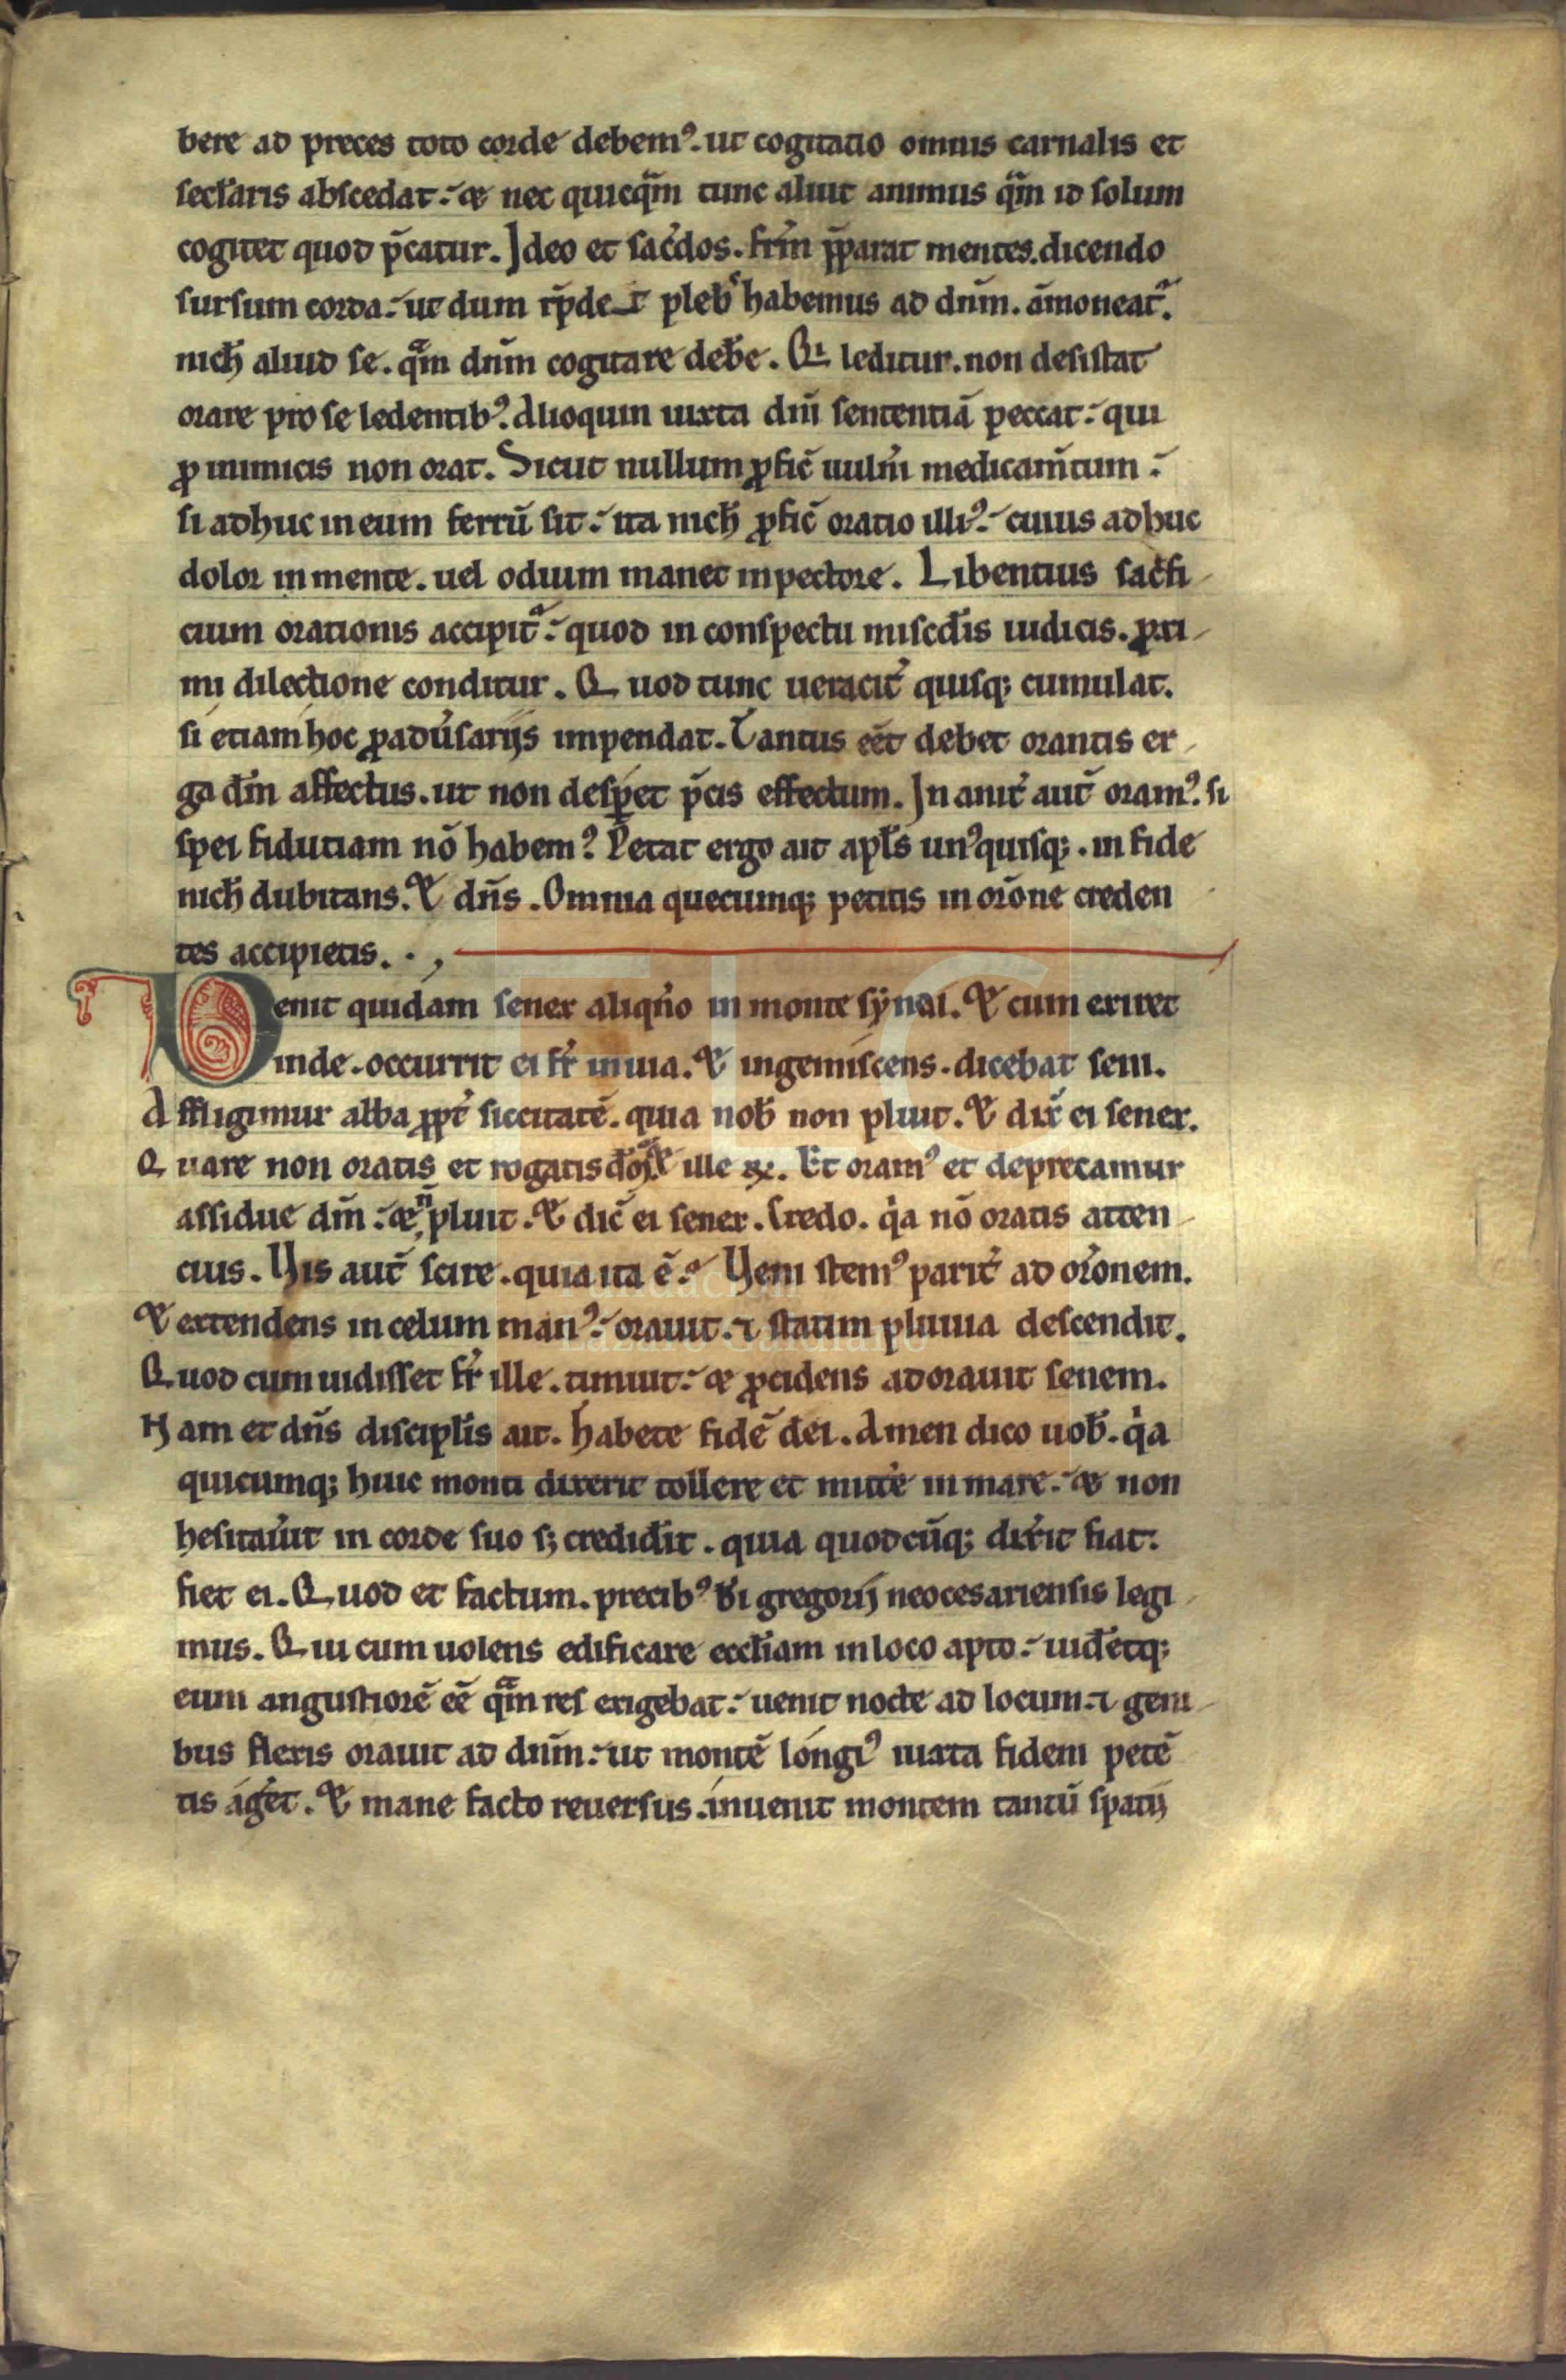 bere ad preces toto corde debem⁹. ut cogitatio omnis carnalis et
seclaris abscedat. & nec quicq̄m tunc aliut animus q̄m id solum
cogitet quod p̄catur. Ideo et sac̄dos. frm̄ p̄parat mentes. dicendo
sursum corda. ut dum rp̄det plebs habemus ad dn̄m. āmoneat᷑.
nich̄ aliud se. q̄m dn̄m cogitare deb̄e. Qi leditur. non desistat
orare pro se ledentib⁹. Alioquin iuxta dn̄i sententiā peccat. qui
ꝓ inimicis non orat. Sicut nullum ꝓfic̄ uuln̄i medicam̄tum.
si adhuc in eum ferrū sit. ita nich̄ ꝓfic̄ oratio illi⁹. cuius adhuc
dolor in mente. uel odium manet in pectore. Libentius sac̄fi
cium orationis accipit᷑. quod in conspectu misc̄dis iudicis. ꝓxi
mi dilectione conditur. Quod tunc ueracit̄ quisq; cumulat.
si etiam hoc ꝓ adūsariis impendat. Tantus ēet debet orantis er
ga dm̄ affectus. ut non desꝑet p̄cis effectum. In anit̄ aut̄ oram⁹. si
spei fidutiam nō habem⁹. Petat ergo ait apl̄s un⁹quisq;. in fide
nich̄ dubitans. & dn̄s. Omnia quecumq; petitis in orōne creden
tes accipietis.
Venit quidam senex aliqn̄o in monte synai. & cum exiret
inde. occurrit ei fr̄ in uia. & ingemiscens. dicebat seni.
Affligimur abba ꝓpt̄ siccitatē. quia nob̄ non pluit. & dix̄ ei senex.
Quare non oratis et rogatis dm̄. & ille ℞. Et oram⁹ et deprecamur
assidue dm̄. & n̄ pluit. & dic̄ ei senex. Credo. q̄a nō oratis atten
cius. Uis aut̄ scire. quia ita ē. Ueni stem⁹ parit̄ ad orōnem.
& extendens in celum man⁹. orauit. ⁊ statim pluuia descendit.
Quod cum uidisset fr̄ ille. timuit. & ꝓcidens adorauit senem.
Nam et dn̄s discipl̄is ait. habete fidē dei. Amen dico uob̄. q̄a
quicumq; huic monti dixerit tollere et mitt̄e in mare. & non
hesitau̅it in corde suo s; credid̄it. quia quodcūq; dix̄it fiat.
fiet ei. Quod et factum. precib⁹ b̄i gregorij neocesariensis legi
mus. Qui cum uolens edificare eccl̄iam in loco apto. uid̄etq;
eum angustiorē ēē q̄m res exigebat. uenit nocte ad locum. ⁊ geni
bus flexis orauit ad dn̄m. ut montē longi⁹ iuxta fidem petē
tis aḡet. & mane facto reuersus. inuenit montem tantū spatij
Fundación
Lázaro Galdiano